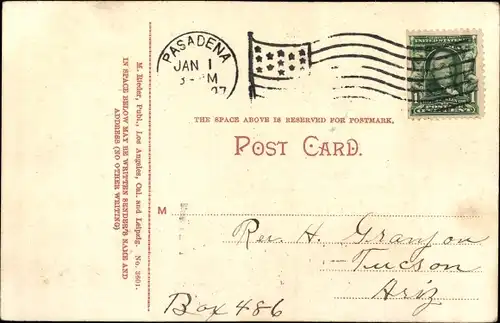 PASADENA
JAN 1
3- M
07
THE SPACE ABOVE IS RESERVED FOR POSTMARK.
POST CARD.
M. Rieder, Publ., Los Angeles, Cal. and Leipzig. No. 3601.
IN SPACE BELOW MAY BE WRITTEN SENDER'S NAME AND
ADDRESS (NO OTHER WRITING)
M
Rev. H. Granjon
Tucson
Ariz
Box 486